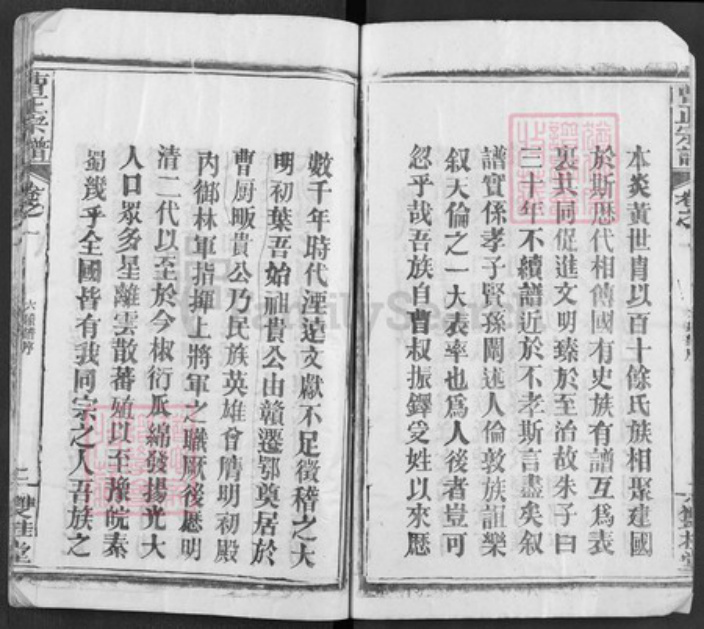 本炎黃世胄以百十餘氏族相聚建國
於斯歷代相傳國有史族有譜互為表
裏共同促進文明臻於至治故朱子曰
三十年不續譜近於不孝斯言盡矣叙
譜實係孝子賢孫闡述人倫敦族誼樂
叙天倫之一大表率也爲人後者豈可
忽乎哉吾族自曹叔振鐸受姓以來歷
數千年時代湮遠文獻不足徵稽之大
明初葉吾始祖貴公由贛遷鄂奠居於
曹厨畈貴公乃民族英雄曾膺明初殿
內御林軍指揮上將軍之職厥後歷明
清二代以至於今椒衍瓜綿發揚光大
人口眾多星離雲散蕃殖以至豫皖秦
蜀幾乎全國皆有我同宗之人吾族之
曹氏宗譜
卷之一
六修譜序
二
雙桂堂
FamilySearch